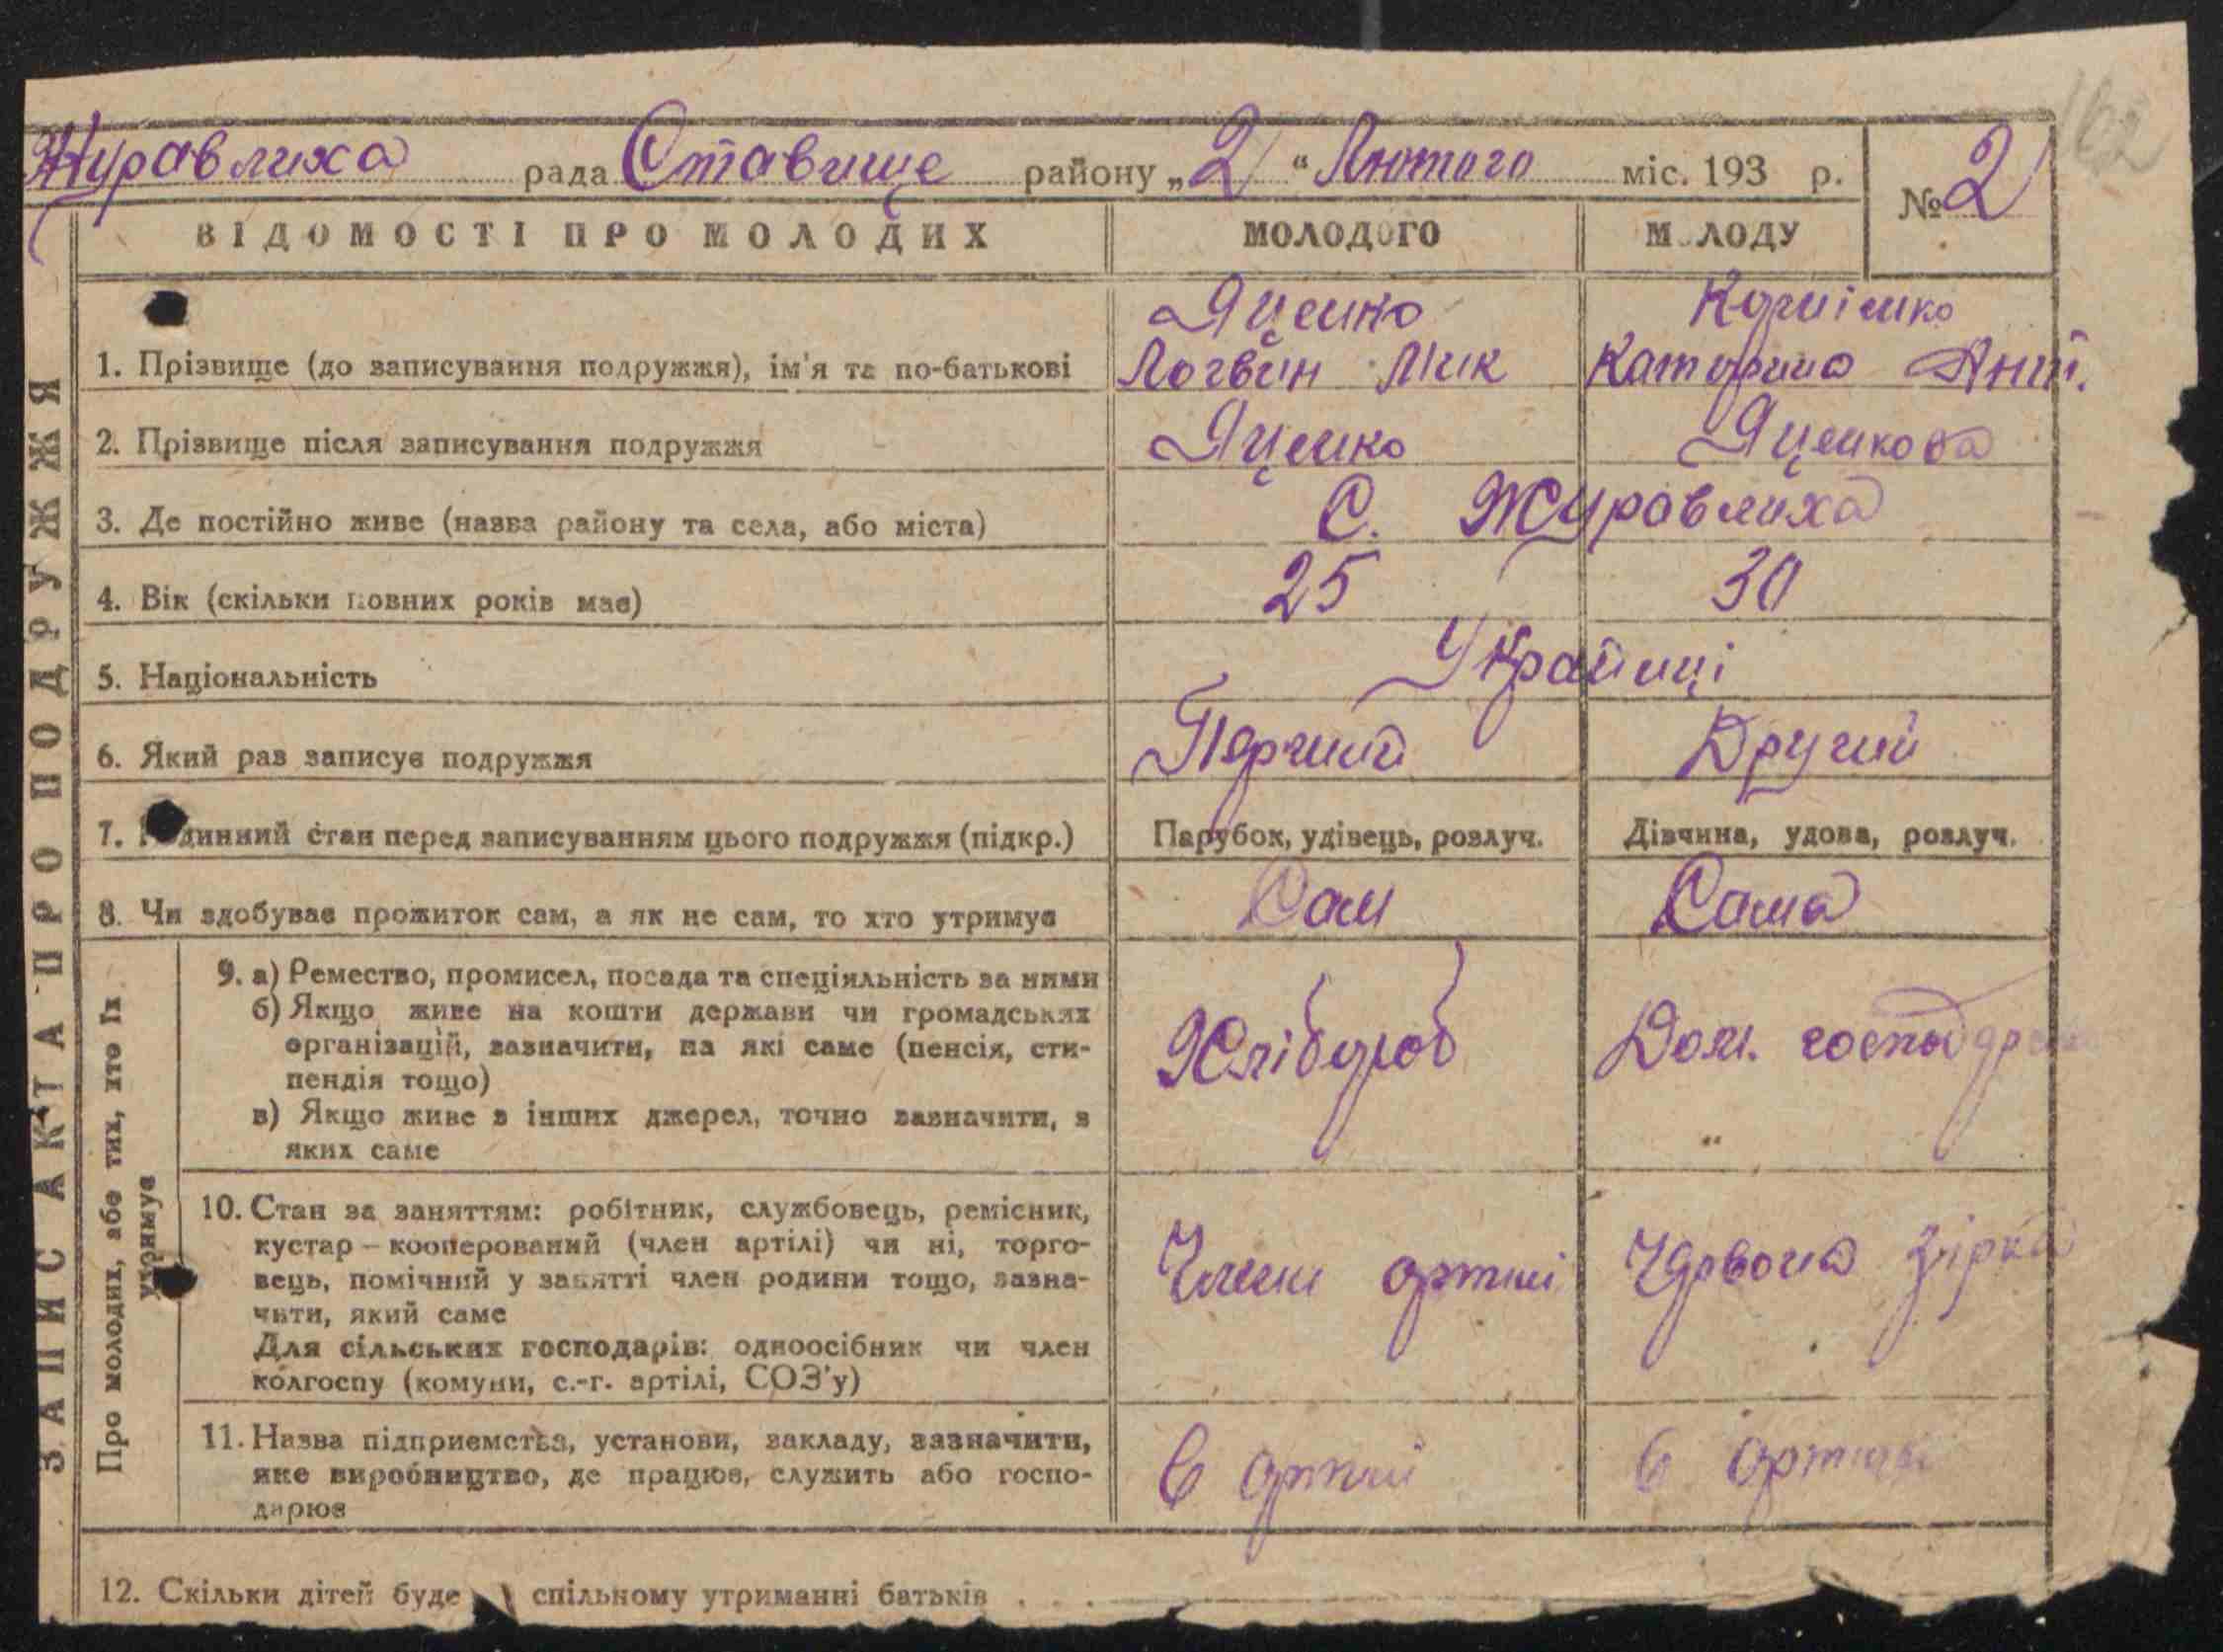 Журавлиха рада Ставище району „2“ Лютого міс. 193 р.
№ 2
162
ЗАПИС АКТА ПРО ПОДРУЖЖЯ
ВІДОМОСТІ ПРО МОЛОДИХ МОЛОДОГО М ЛОДУ
1. Прізвище (до записування подружжя), ім'я та по-батькові
Яценко
Логвин Мик
Корнієнко
Катерина Ант.
2. Прізвище після записування подружжя Яценко Яценкова
3. Де постійно живе (назва району та села, або міста) С. Журавлиха
4. Вік (скільки повних років має) 25 30
5. Національність Українці
6. Який раз записує подружжя Перчий Другий
7. Р динний стан перед записуванням цього подружжя (підкр.) Парубок, удівець, розлуч. Дівчина, удова, розлуч.
8. Чи здобуває прожиток сам, а як не сам, то хто утримує Сам Сама
Про молодих, або тих, хто їх
утримує
9. а) Ремество, промисел, посада та спеціяльність за ними
б) Якщо живе на кошти держави чи громадських
організацій, зазначити, на які саме (пенсія, сти-
пендія тощо)
в) Якщо живе з інших джерел, точно зазначити, з
яких саме
Хлібороб
Дом.
10. Стан за заняттям: робітник, службовець, ремісник,
кустар – кооперований (член артілі) чи ні, торго-
вець, помічний у занятті член родини тощо, зазна-
чити, який саме
Для сільських господарів: одноосібник чи член
колгоспу (комуни, с.-г. артілі, СОЗ'у)
Члени артілі Червона зірка
11. Назва підприємства, установи, закладу, зазначити,
яке виробництво, де працює, служить або госпо-
дарює
в артілі в артілі
12. Скільки дітей буде спільному утриманні батьків . . .